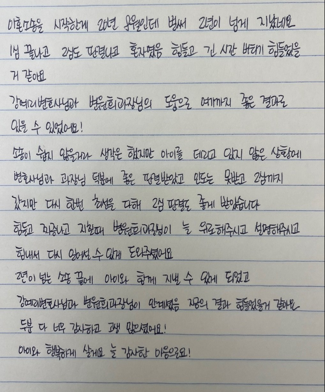 이혼소송을 시작한게 20년 8월인데 벌써 2년이 넘게 지났네요
1심 끝나고 2심도 땅땅나고 혼자였음 힘들고 긴 시간 버티기 힘들었을
거 같아요
강예리변호사님과 변원희과장님의 도움으로 여기까지 좋은 결과로
있을 수 있었어요!
소송이 쉽지 않을거라 생각은 했지만 아이를 데리고 있지 않은 상황에
변호사님과 과장님 덕분에 좋은 판결받았고 인도는 못받고 2심까지
갔지만 다시 한번 최선을 다해 2심 판결도 좋게 받았습니다
힘들고 지칠때 변원희과장님이 늘 위로해주시고 설명해주시고
힘내서 다시 일어설 수 있게 도와주셨어요
2년이 넘는 소송 끝에 아이와 함께 지낼 수 있게 되었고
강예리변호사님과 변원희과장님이 안계셨음 지금의 결과 힘들었을거 같아요
두분 다 너무 감사하고 고생 많으셨어요!
아이와 행복하게 살게요 늘 감사한 마음으로요!